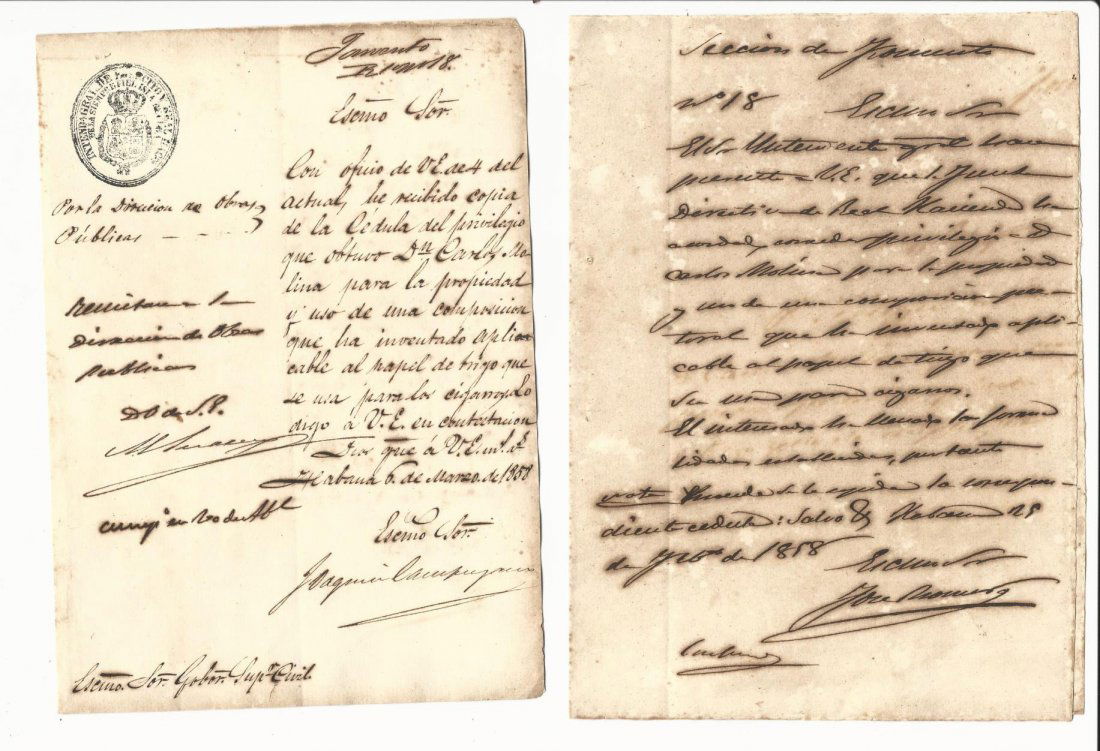 Fomento
Nº 18.
Escmo Sor.
Con oficio de V.E. de 4 del
actual, he recibido copia
de la Cédula del privilegio
que obtuvo Dn Carlos Mo-
lina para la propiedad
y uso de una composicion
que ha inventado aplica-
cable al papel de trigo que
se usa para los cigarros. Lo
digo á V.E. en contestacion
Dios gue á V.E. ms. as.
Habana 6 de Marzo de 1858
Escmo Sor.
Joaquin Campuzano
Por la Direccion de Obras
Públicas
Remitase a la
Direccion de Obras
publicas
D O de S.E.
Escmo. Sor. Gobor. Supr. Civil.
Seccion de Fomento
nº 18
Escmo Sr
El Sr Yntendente gral hace
presente a V.E. que la Junta
Directiva de Real Hacienda ha
acordado conceder privilegio a D
Carlos Molina para la propiedad
y uso de una composicion pec-
toral que ha inventado apli-
cable al papel de trigo que
se usa para cigarros.
El interesado ha llenado las forma
lidades establecidas, por tanto
puede se le espida la correspon-
diente cedula: Salvo &. Habana 25
de de 1858
Escmo Sr